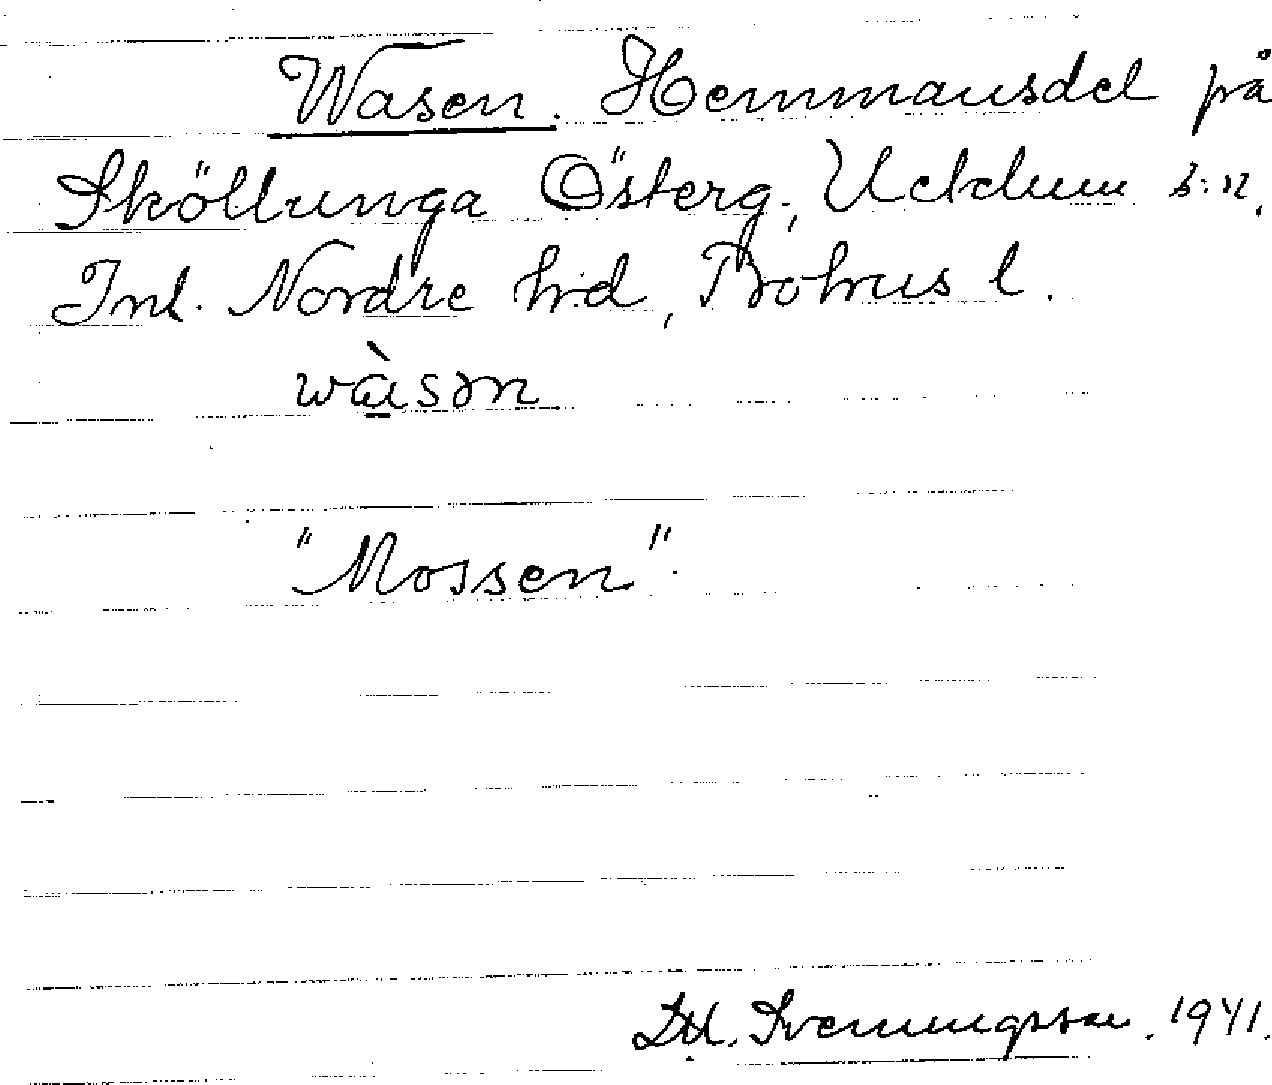 Wasen. Hemmansdel på
Sköllunga Österg., Ucklum s:n,
Inl. Nordre hd, Bohus l.
wàsən
"Mossen".
Sveningsson. 1941.